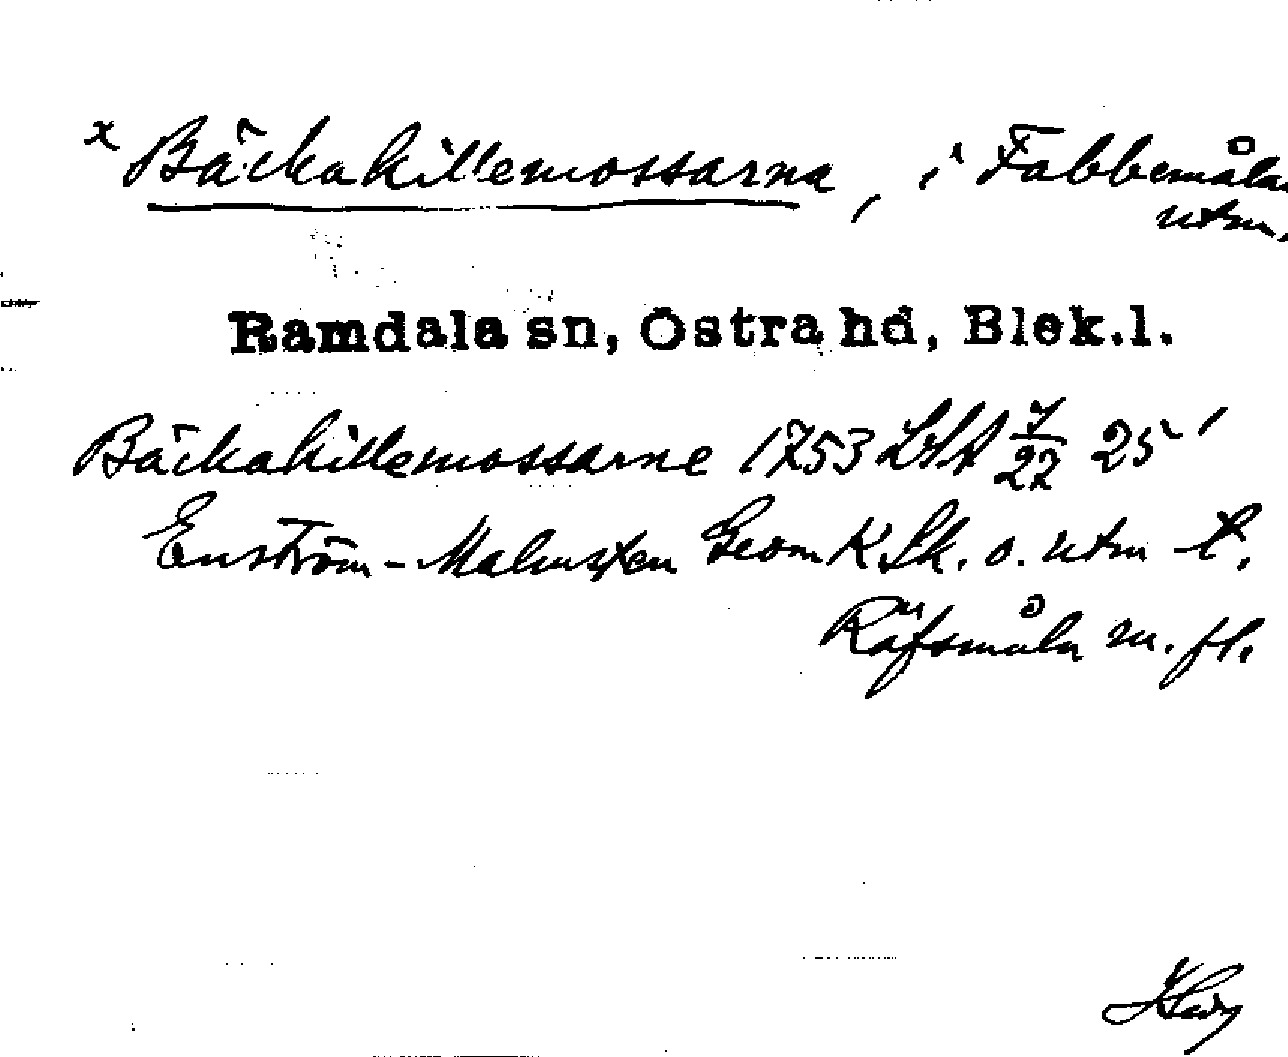 x Bäckahillemossarna, i Fabbemåla
utm.
Ramdala sn, Östra hd, Blek.l.
Bäckahillemossarne 1753 LSA 7/22 25'
Enström-Malmsten Geom K Sk. o. utm t.
Räfsmåla m. fl.